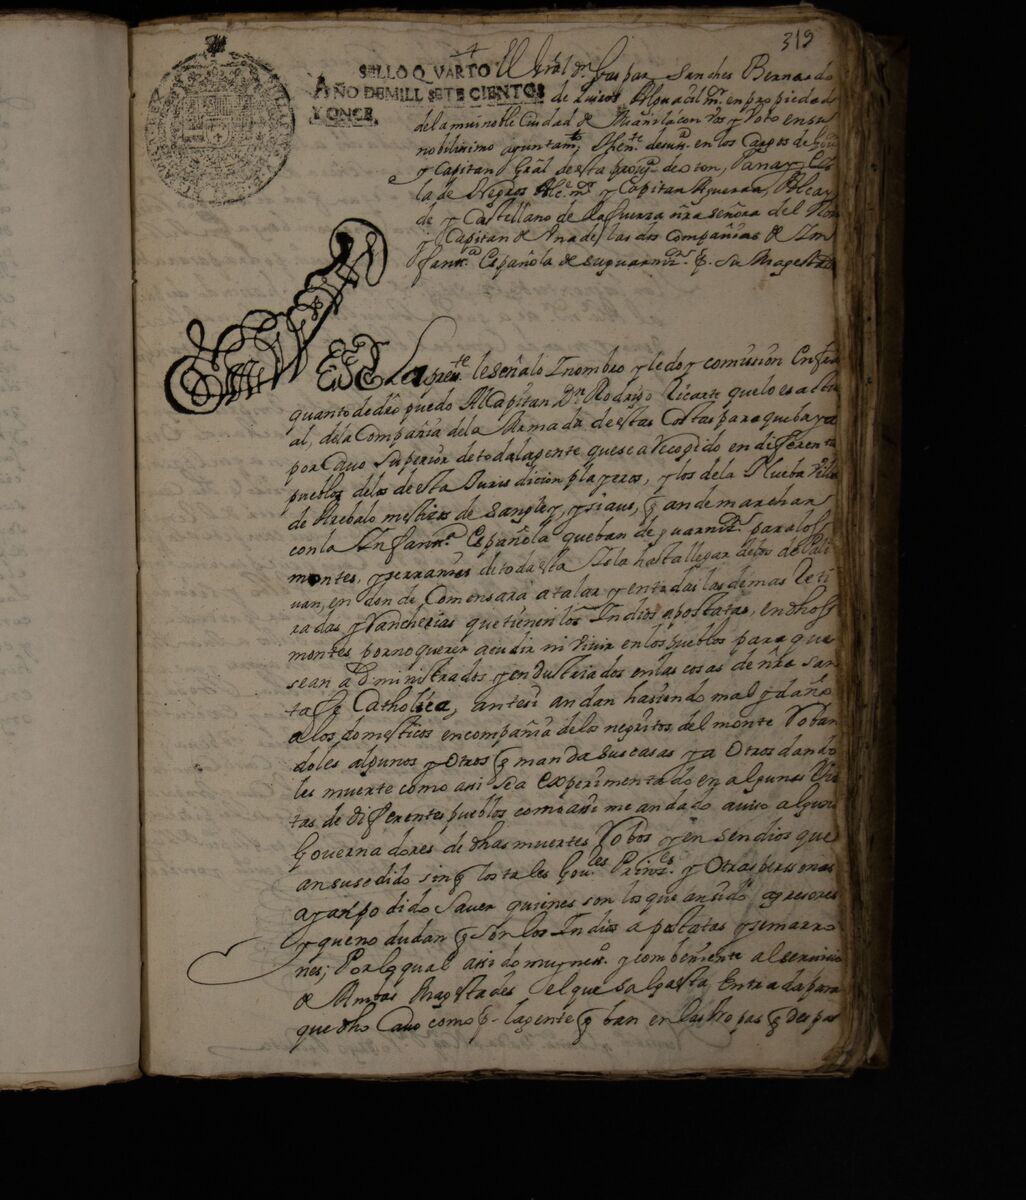 319
SELLO QVARTO
AÑO DE MILL SETECIENTOS
Y ONCE.
El Gral Dn. Gaspar Sanches Bernardo
de Quiros Alguacil mr. en propiedad
de la mui noble Ciudad de Manila con vos y Voto en su
nobilisimo ayuntamto, Thente de su sa. en los Cargos de Gour
y Capitan Gral de esta proua. de oton, Panay, Es
la de Negros Alce. mr. y Capitan Aguerra, Alcay
de y Castellano de la fuerza nra señora del Ros
y Capitan de Una de las dos Compañias de Ym
fantta Española de su guarnizon p. su Magestad
Por la presute. le señalo Y nombro y le doy comision En fra
quanto de dro puedo Al Capitan Dn. Rodrigo Ricarte que lo es actu
al, de la Compañia de la Armada de estas Costas para que baya
por Cauo Superior de toda la gente que se a recogido en diferente
pueblos de los de esta Jurisdicion playeros, y los de la Nueba Villa
de Arebalo mestizos de Sangley, y siaus, q an de marchar
con la Ynfantta. Española que ban de guarnizon para los
montes, y serranias de toda esta Ysla hasta llegar a los de Pali
uan, en donde Comensara a talar y entradas las demas Reti
radas y Rancherias que tienen los Yndios apostatas, en dhos
montes por no querer acudir ni vivir en los pueblos para que
sean adiministrados y endustriados en las cosas de nra san
ta fe Catholica, antesi andan hasiendo mal y daño
a los domesticos en compañia de los negritos del monte Roban
doles algunos y Otros q manda sus casas y a Otros dando
les muerte como assi se a experimentado en algunas Vi
tas de diferentes pueblos como assi me an dado auiso algunos
Gouernadores de dhas muertes Robos y ensendios que
an susedido sin q los tales Goures. Prinzes. y Otras personas
ayan podido Sauer quienes son los que an sido agresores
y que no dudan q son los Yndios apostatas y simarro
nes; Por lo qual assido muy nesso. y combeniente al seruicio
de Ambas Magestades el que salga esta Entrada para
que dho Cauo como p. la gente q ban en las tropas q des pas